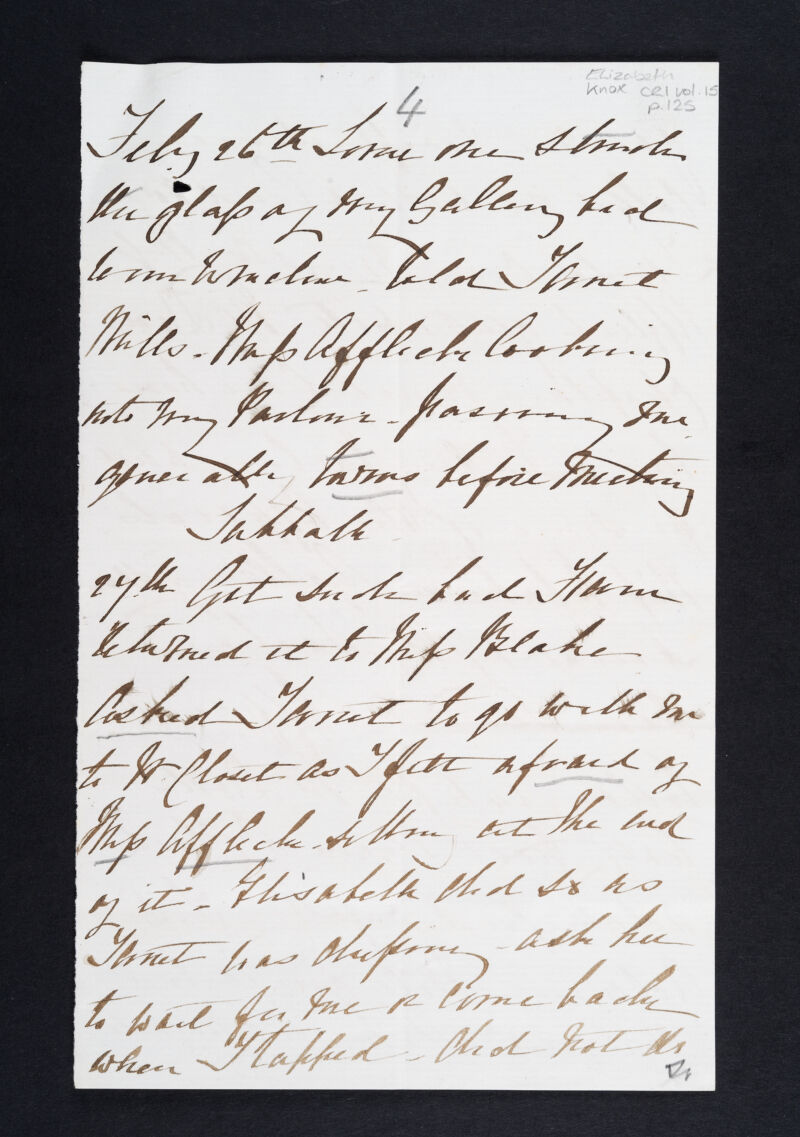 Elizabeth
Knox CR1 vol.15
p.125
4
Feby 26th Some one struck
the glass of my Gallery bed
room window - told Janet
Mills - Miss Affleck looking
into my Parlour - passing me
generally towns before meeting
Sabbath
27th Got such bad
returned it to Miss Blake
Asked Janet to go with me
to W. Closet as I felt afraid of
Miss Affleck sitting at the end
of it - Elisabeth did so as
Janet was dressing - ask her
to wait for me or come back
when I tapped - did not do
so